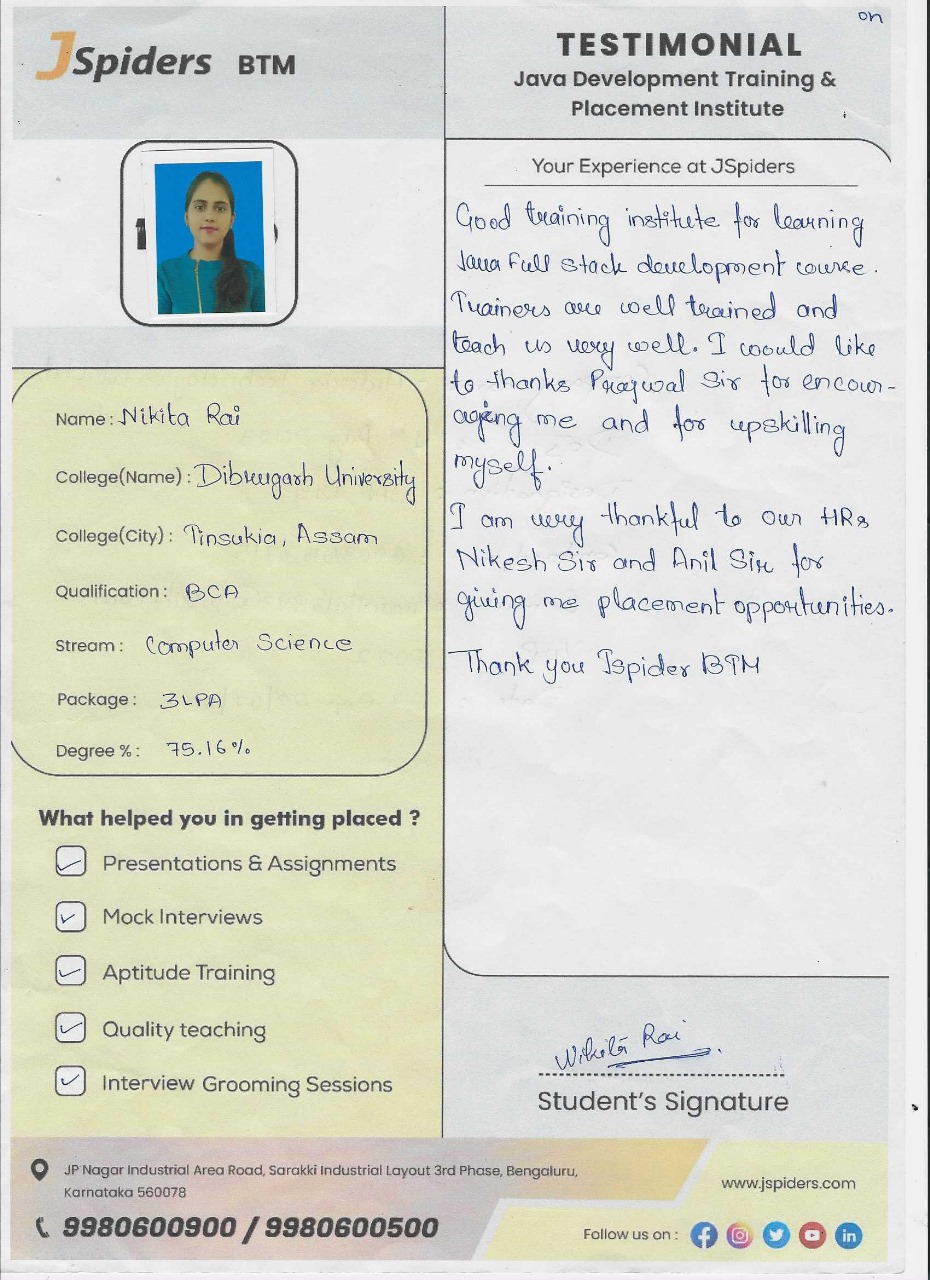 on
JSpiders BTM
TESTIMONIAL
Java Development Training &
Placement Institute
Your Experience at JSpiders
Good training institute for learning
Java Full stack development course.
Trainers are well trained and
teach us very well. I would like
to thanks Prajwal Sir for encour-
ageing me and for upskilling
myself.
I am very thankful to our HRs
Nikesh Sir and Anil Sir for
giving me placement opportunities.
Thank you Jspider BTM
Name : Nikita Rai
College(Name) : Dibrugarh University
College(City) : Tinsukia, Assam
Qualification : BCA
Stream : Computer Science
Package : 3LPA
Degree % : 75.16%
What helped you in getting placed ?
Presentations & Assignments
Mock Interviews
Aptitude Training
Quality teaching
Interview Grooming Sessions
Nikita Rai
Student's Signature
JP Nagar Industrial Area Road, Sarakki Industrial Layout 3rd Phase, Bengaluru,
Karnataka 560078
9980600900 / 9980600500
www.jspiders.com
Follow us on :